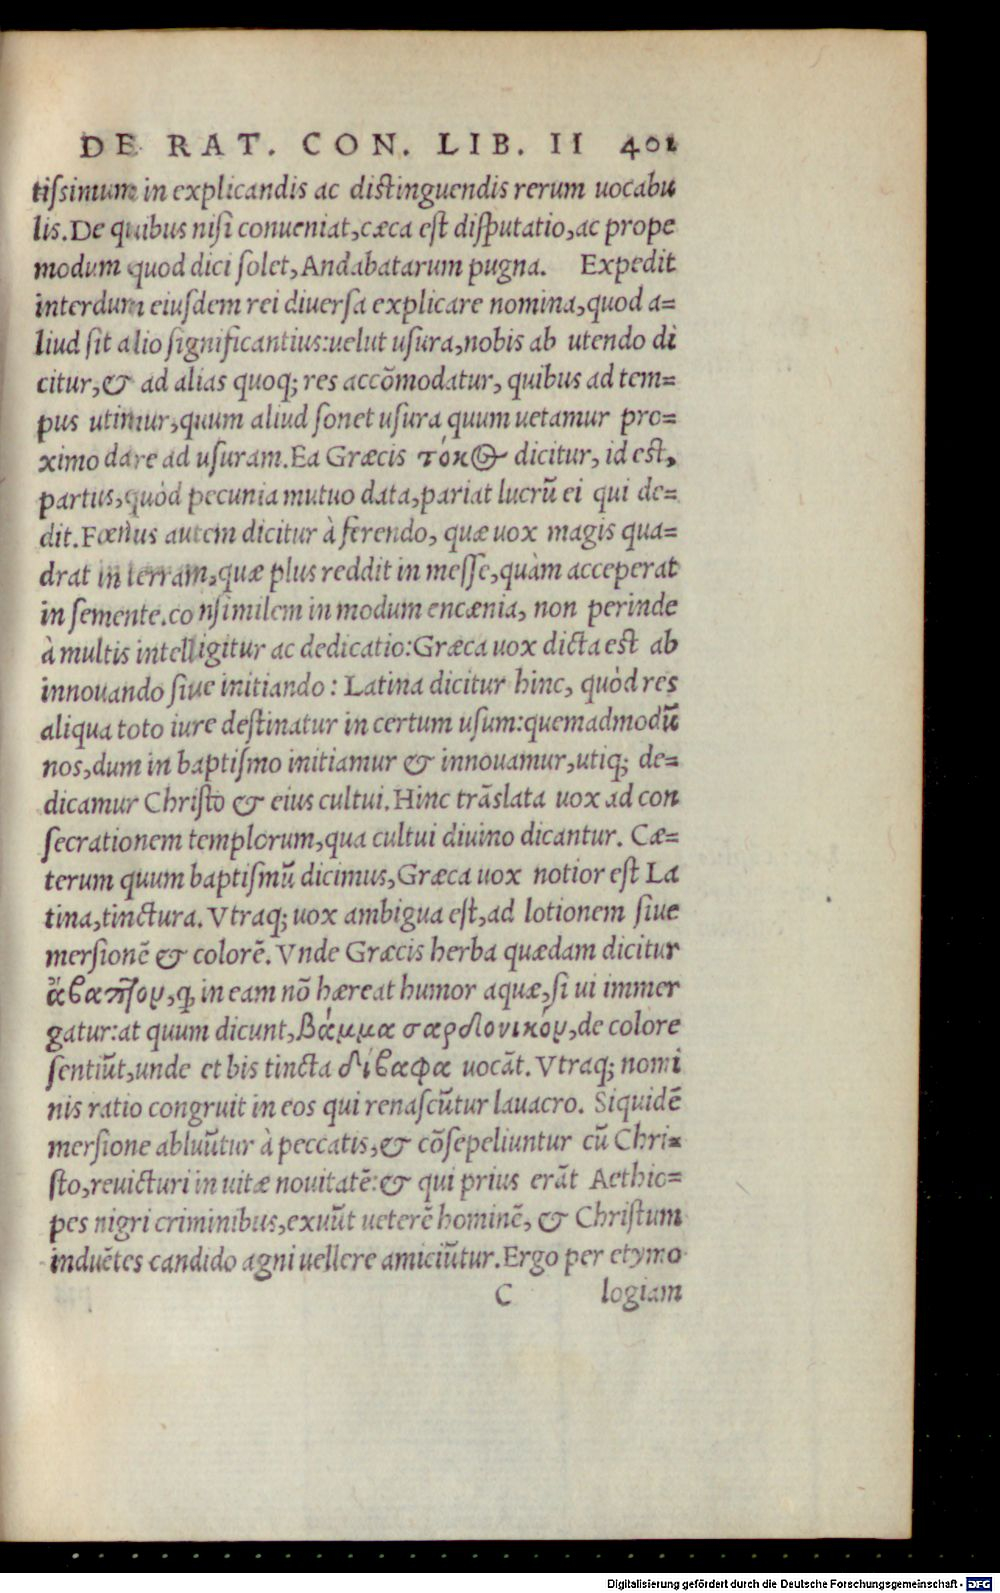 DE RAT. CON. LIB. II 401
tißimum in explicandis ac distinguendis rerum uocabu
lis. De quibus nisi conueniat, cæca est disputatio, ac prope
modum quod dici solet, Andabatarum pugna. Expedit
interdum eiusdem rei diuersa explicare nomina, quod a=
liud sit alio significantius: uelut usura, nobis ab utendo di
citur, & ad alias quoq; res accõmodatur, quibus ad tem=
pus utimur, quum aliud sonet usura quum uetamur pro=
ximo dare ad usuram. Ea Græcis τόκος dicitur, id est,
partus, quòd pecunia mutuo data, pariat lucrũ ei qui de=
dit. Fœnus autem dicitur à ferendo, quæ uox magis qua=
drat in terram, quæ plus reddit in messe, quàm acceperat
in semente. consimilem in modum encænia, non perinde
à multis intelligitur ac dedicatio: Græca uox dicta est ab
innouando siue initiando: Latina dicitur hinc, quòd res
aliqua toto iure destinatur in certum usum: quemadmodũ
nos, dum in baptismo initiamur & innouamur, utiq; de=
dicamur Christo & eius cultui. Hinc trãslata uox ad con
secrationem templorum, qua cultui diuino dicantur. Cæ=
terum quum baptismũ dicimus, Græca uox notior est La
tina, tinctura. Vtraq; uox ambigua est, ad lotionem siue
mersionẽ & colorẽ. Vnde Græcis herba quædam dicitur
ἄβαπτον, ꝙ in eam nõ hæreat humor aquæ, si ui immer
gatur: at quum dicunt, βάμμα σαρδονικόν, de colore
sentiũt, unde et bis tincta δίβαφα uocãt. Vtraq; nomi
nis ratio congruit in eos qui renascũtur lauacro. Siquidẽ
mersione abluũtur à peccatis, & cõsepeliuntur cũ Chri=
sto, reuicturi in uitæ nouitatẽ: & qui prius erãt Aethio=
pes nigri criminibus, exuũt ueterẽ hominẽ, & Christum
induẽtes candido agni uellere amiciũtur. Ergo per etymo
C logiam
Digitalisierung gefördert durch die Deutsche Forschungsgemeinschaft - DFG